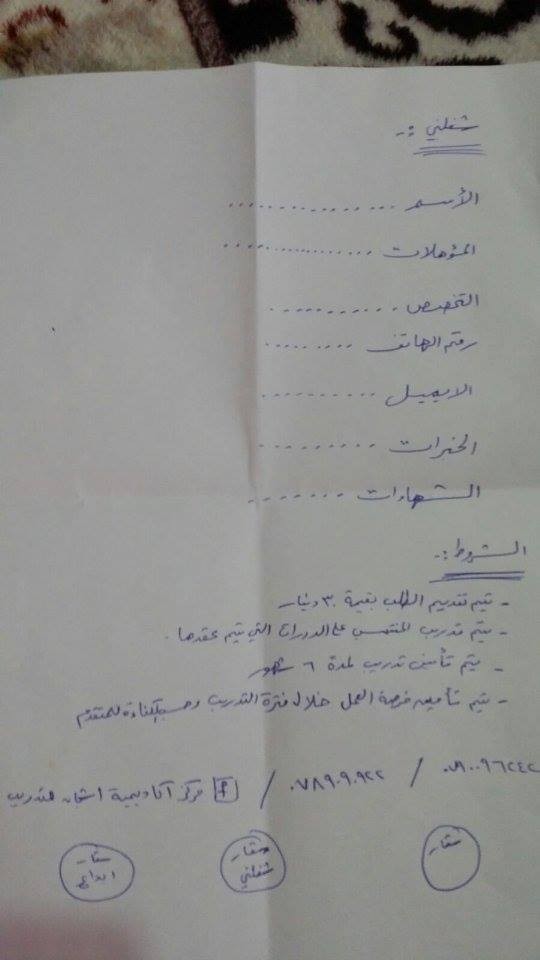 شغلني :-
الأسم ................
المؤهلات ................
التخصص ............
رقم الهاتف .........
الايميل ..........
الخبرات ..........
الشهادات .......
الشروط :-
- يتم تقديم الطلب بقيمة ٣٠ دينار
- يتم تدريب المنتسب على الدورات التي يتم عقدها .
- يتم تأمين تدريب لمدة ٦ شهور
- يتم تأمين فرصة العمل خلال فترة التدريب وحسب الكفاءة للمتقدم
/ ٠٧٨٩٠٩٠٩٢٢ / f مركز أكاديمية للتدريب
شعار
شعار شغلني
شعار ابداع